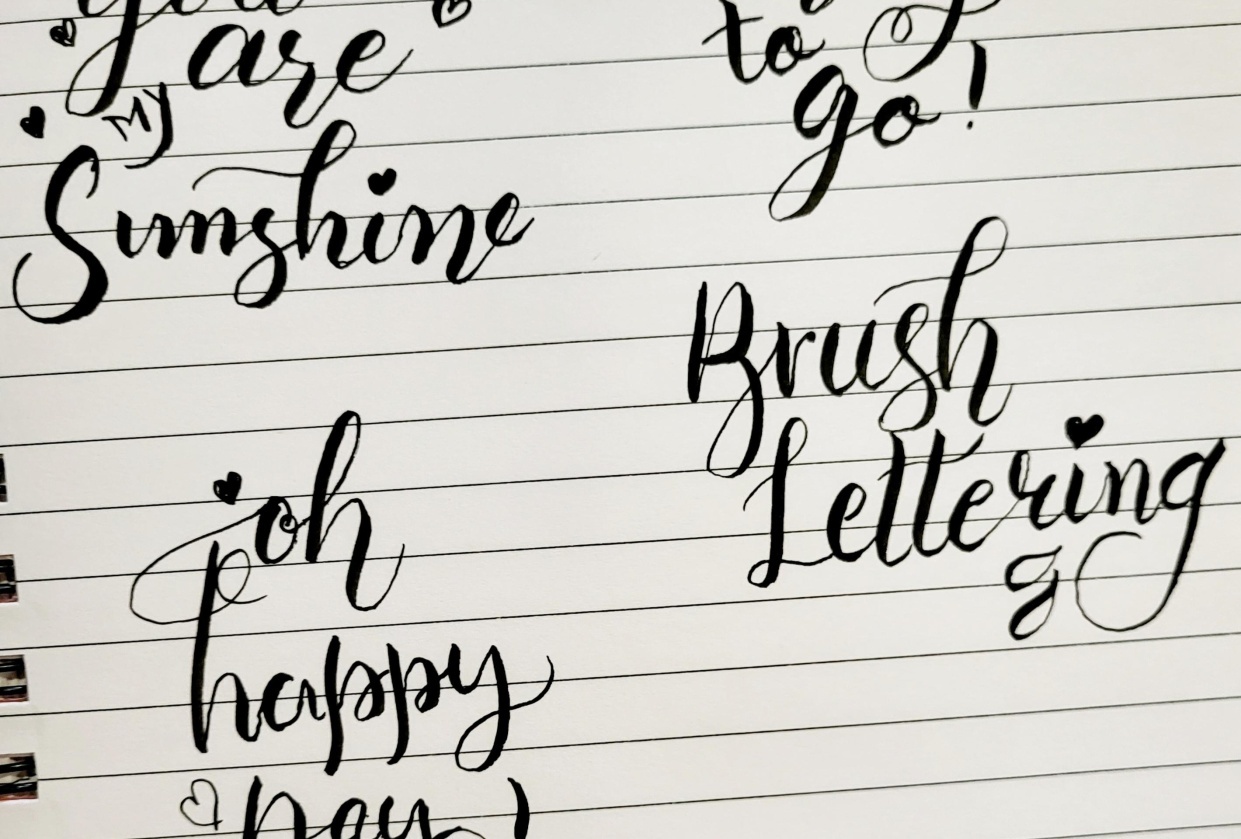 you
are
My
Sunshine
to
go!
Brush
Lettering
oh
happy